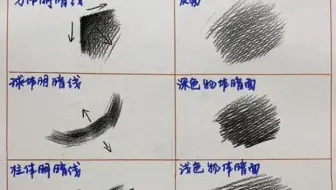 方体明暗线
灰面
球体明暗线
深色物体暗面
柱体明暗线
浅色物体暗面